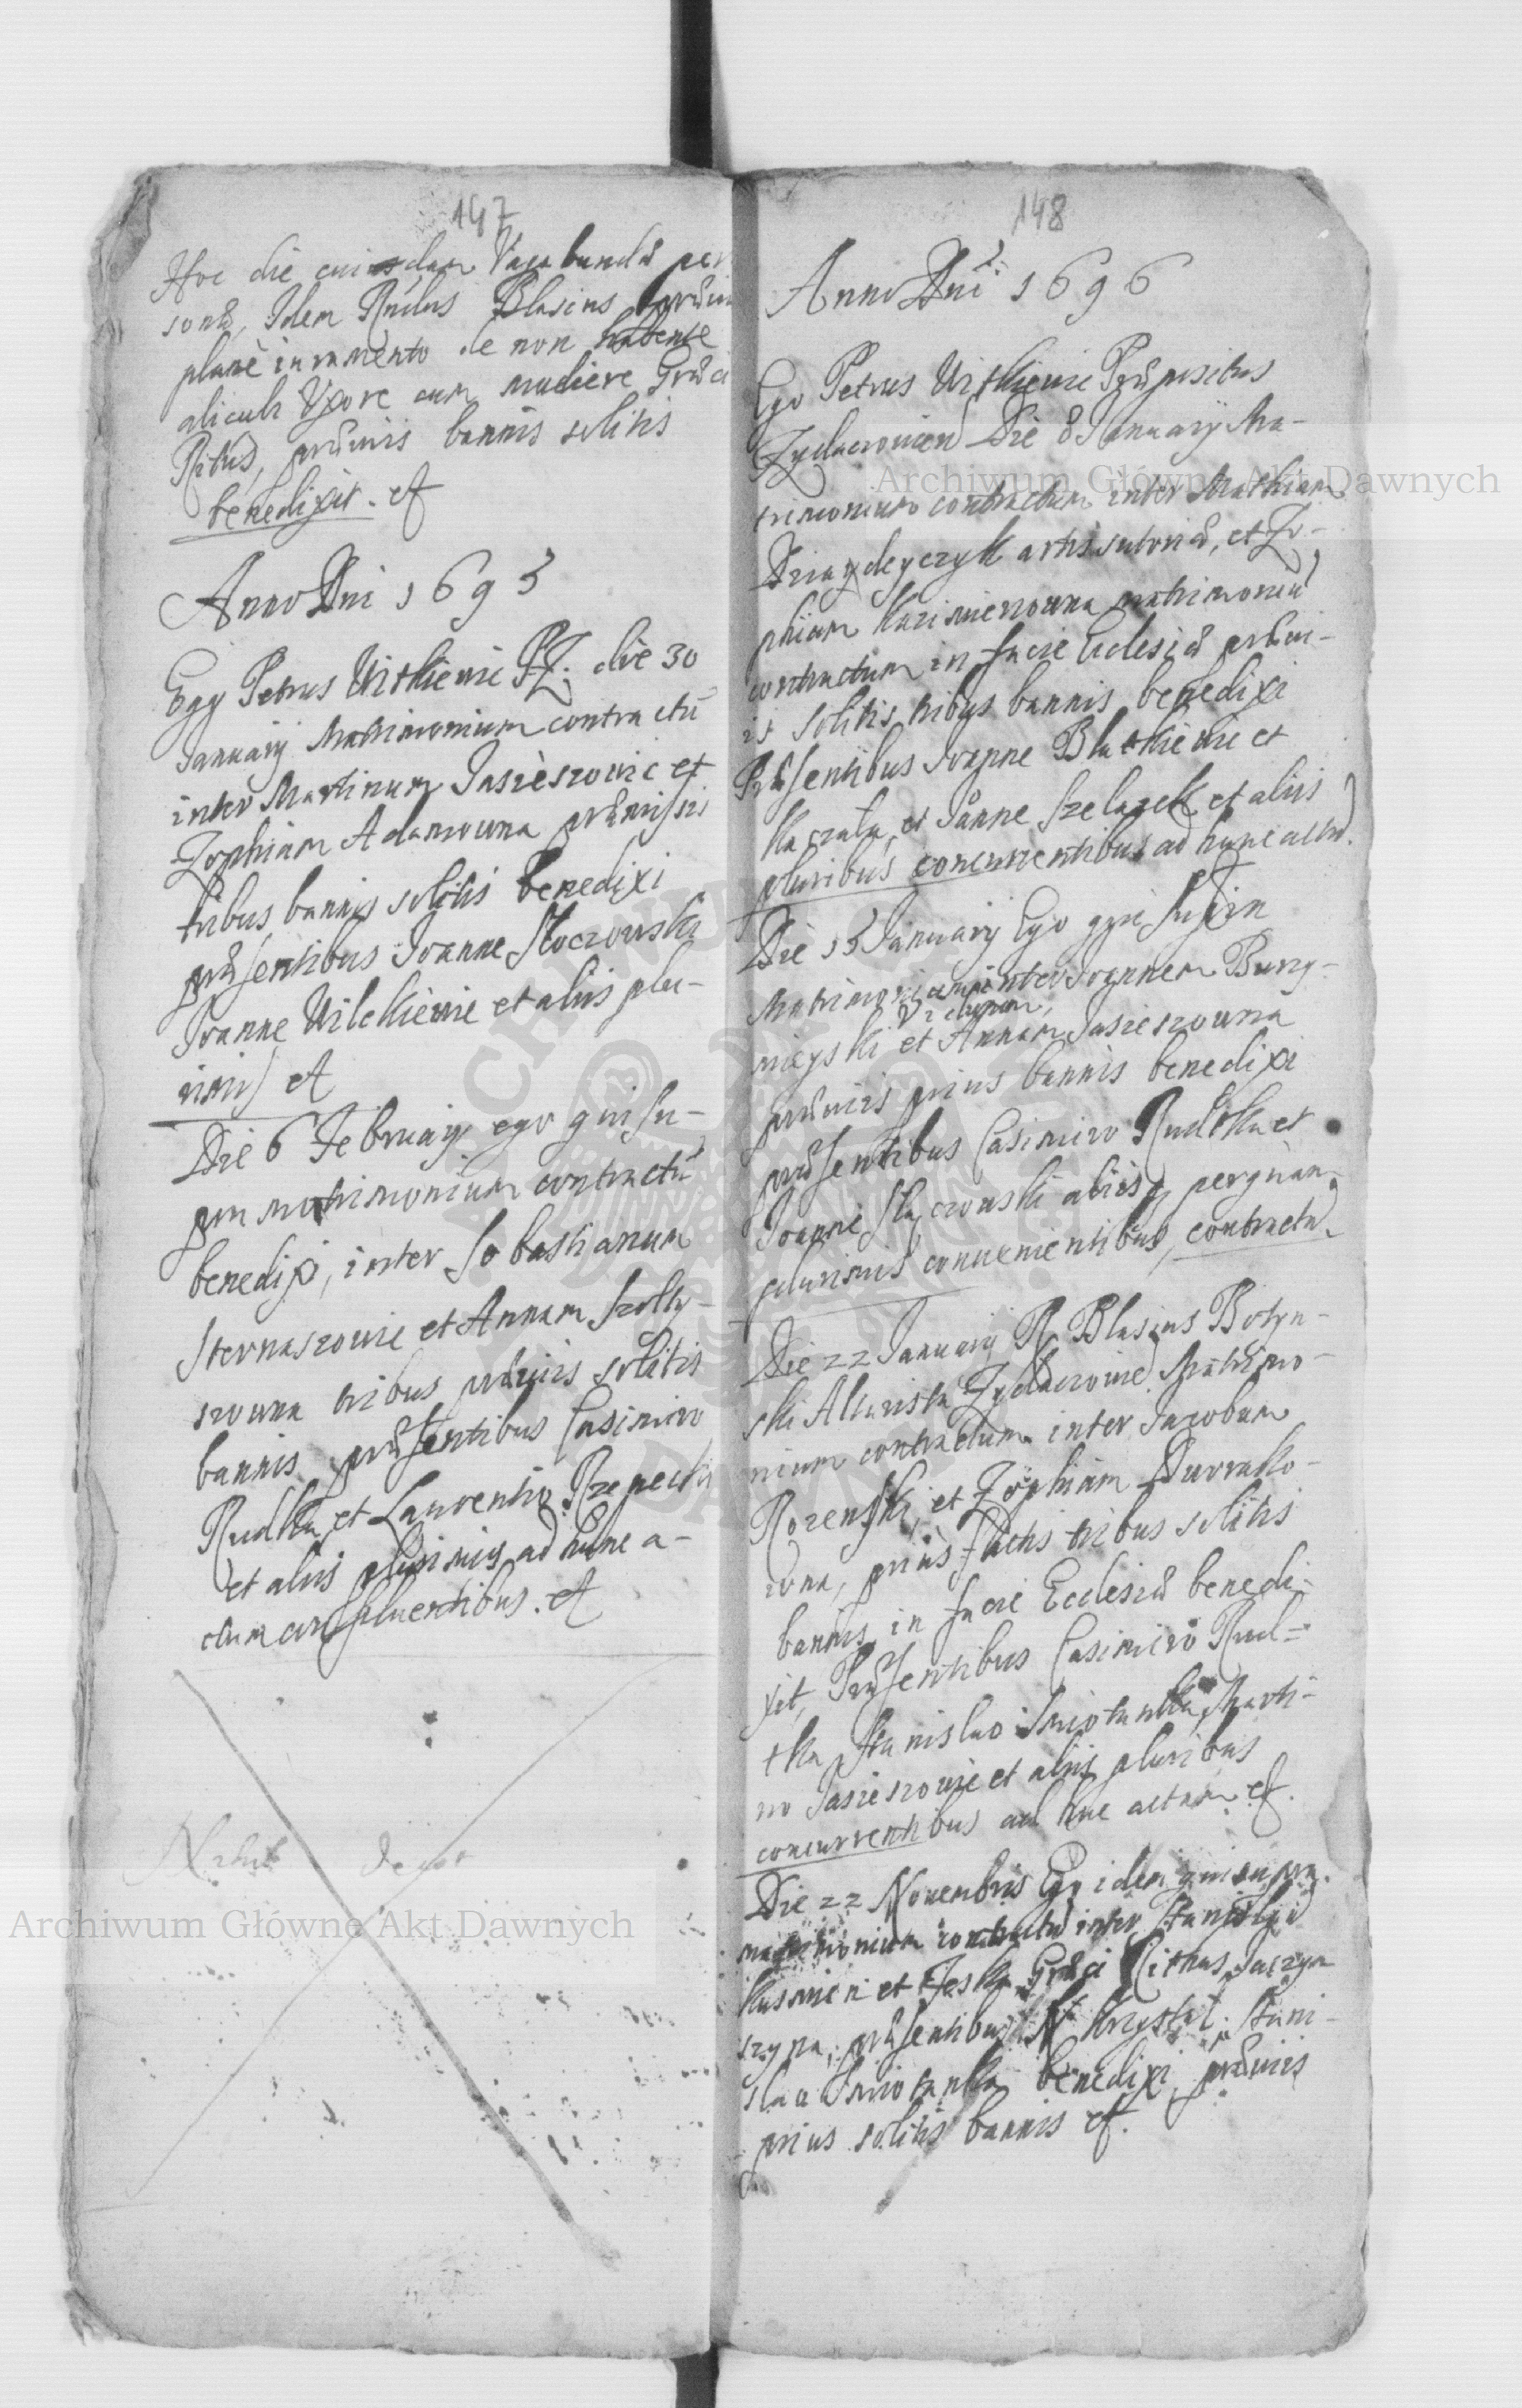 147
Hoc die cuiusdam Vagabundæ per
sonæ, Idem Rndus Blasius præuio
plane iuramento de non habente
alicubi Uxore cum muliere Græci
Ritus, præuijs bannis solitis
benedixit. et
Anno Dni 1695
Ego Petrus Witkiewic PZ. die 30
January Matrimonium contractū
inter Martinum Jasieszowic et
Zophiam Adamowna præmissis
tribus bannis solitis benedixi
præsentibus Joanne Stoczowski
Joanne Wilckiewic et alijs plu-
rimis et
Die 6 February ego qui su-
pra matrimonium contractū
benedixi, inter Sobastianum
Sternaszowic et Annam Szolty-
szowna tribus præuijs solitis
bannis præsentibus Casimiro
Rudka et Laurentio Rzepecki
et alijs plurimis ad hunc a-
ctum confluentibus. et
148
Anno Dni 1696
Ego Petrus Witkiewic Præpositus
Zydaczouien Die 8 January Ma-
trimonium contractum inter Mathiam
artis sutoriæ, et Zo-
phiam Kazimierzowna matrimoniū
contractum in facie Eclesiæ præui-
is solitis tribus bannis benedixi
Præsentibus Joanne Blatkiewic et
Kaczała, et Janne Szelazek et alijs
pluribus concurrentibus ad hunc actū.
Die 15 January Ego qui supra
Matrimonium inter Joannem Burzy-
Viduam,
nieyski et Annam Jasieszowna
præuijs prius bannis benedixi
præsentibus Casimiro Rudtka et
Joanne Stoczowski alijsq perquam
plurimis conuenientibus, contractū
Die 22 January R Blasius Botyn-
ski Altarista Zydaczouien Matrimo-
nium contractum inter Jacobum
Rozenski, et Zophiam Surratko-
wna, prius factis tribus solitis
bannis, in facie Ecclesiæ benedi-
xit, Præsentibus Casimiro Rud-
tka Stanislao Smotanka, Marti-
no Jasieszowic et alijs pluribus
concurrentibus ad hūc actum et.
Die 22 Nouembris Ego idem qui supra
matrimonium contractū inter Stanislaū
Kusmien et Græci Rithus
szyna, præsentibus N Krzysztal, Stani-
slao Smotanka benedixi præuijs
prius solitis bannis et.
Archiwum Główne Akt Dawnych
Archiwum Główne Akt Dawnych